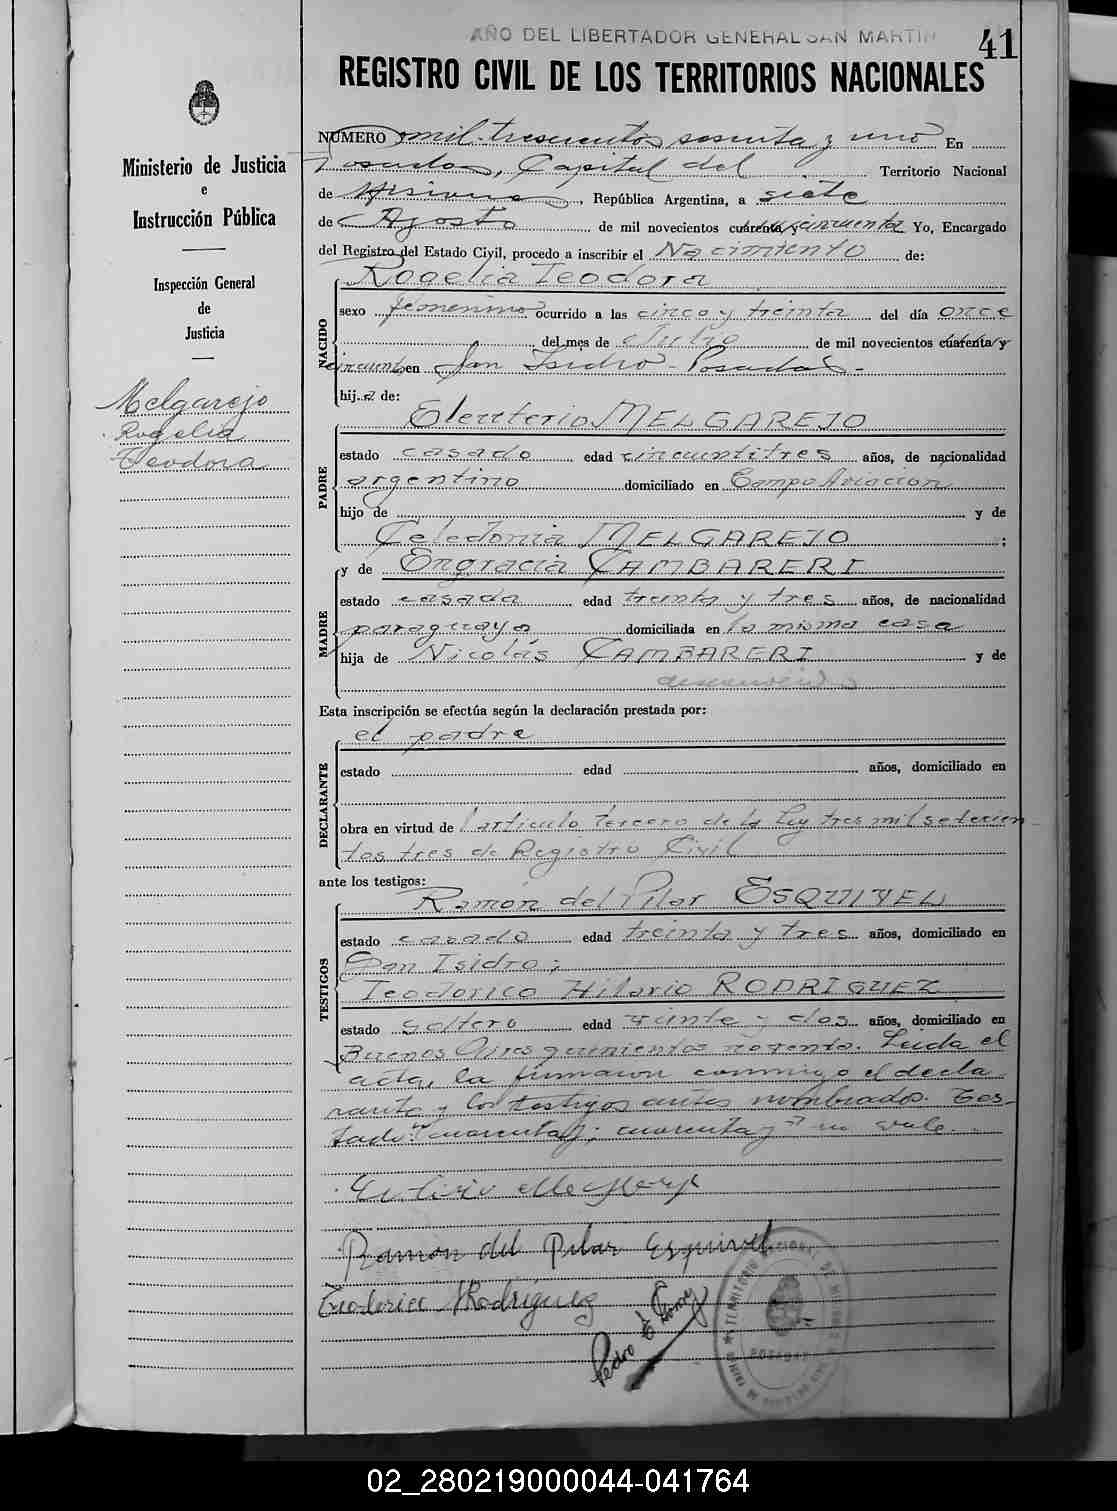 AÑO DEL LIBERTADOR GENERAL SAN MARTIN
41
REGISTRO CIVIL DE LOS TERRITORIOS NACIONALES
Ministerio de Justicia
e
Instrucción Pública
Inspección General
de
Justicia
Melgarejo
Rogelia
Teodora
NÚMERO mil trescientos sesenta y uno En
Posadas, Capital del Territorio Nacional
de Misiones, República Argentina, a siete
de Agosto de mil novecientos cuarenta y cincuenta Yo, Encargado
del Registro del Estado Civil, procedo a inscribir el Nacimiento de:
NACIDO
Rogelia Teodora
sexo femenino ocurrido a las cinco y treinta del día once
del mes de Julio de mil novecientos cuarenta y
cincuenta en San Isidro - Posadas -
hij.a de:
PADRE
Eleuterio MELGAREJO
estado casado edad cincuentitres años, de nacionalidad
argentino domiciliado en Campo Aviación
hijo de y de
Celedonia MELGAREJO ;
MADRE
y de Engracia CAMBARERI
estado casada edad treinta y tres años, de nacionalidad
paraguaya domiciliada en la misma casa
hija de Nicolás CAMBARERI y de
desconocida
Esta inscripción se efectúa según la declaración prestada por:
DECLARANTE
el padre
estado edad años, domiciliado en
obra en virtud de l artículo tercero de la Ley tres mil setecien
tos tres de Registro Civil
ante los testigos:
TESTIGOS
Ramón del Pilar ESQUIVEL
estado casado edad treinta y tres años, domiciliado en
San Isidro;
Teodorico Hilario RODRIGUEZ
estado soltero edad veinte y dos años, domiciliado en
Buenos Aires quinientos noventa. Leida el
acta, la firmaron conmigo el decla
rante y los testigos antes nombrados. Tes-
tado: "cuarenta y; cuarenta y" no vale.
Ramón del Pilar Esquivel
Teodorico H Rodríguez
Pedro E
TERRITORIO NACIONAL DE MISIONES
POSADAS
02_280219000044-041764